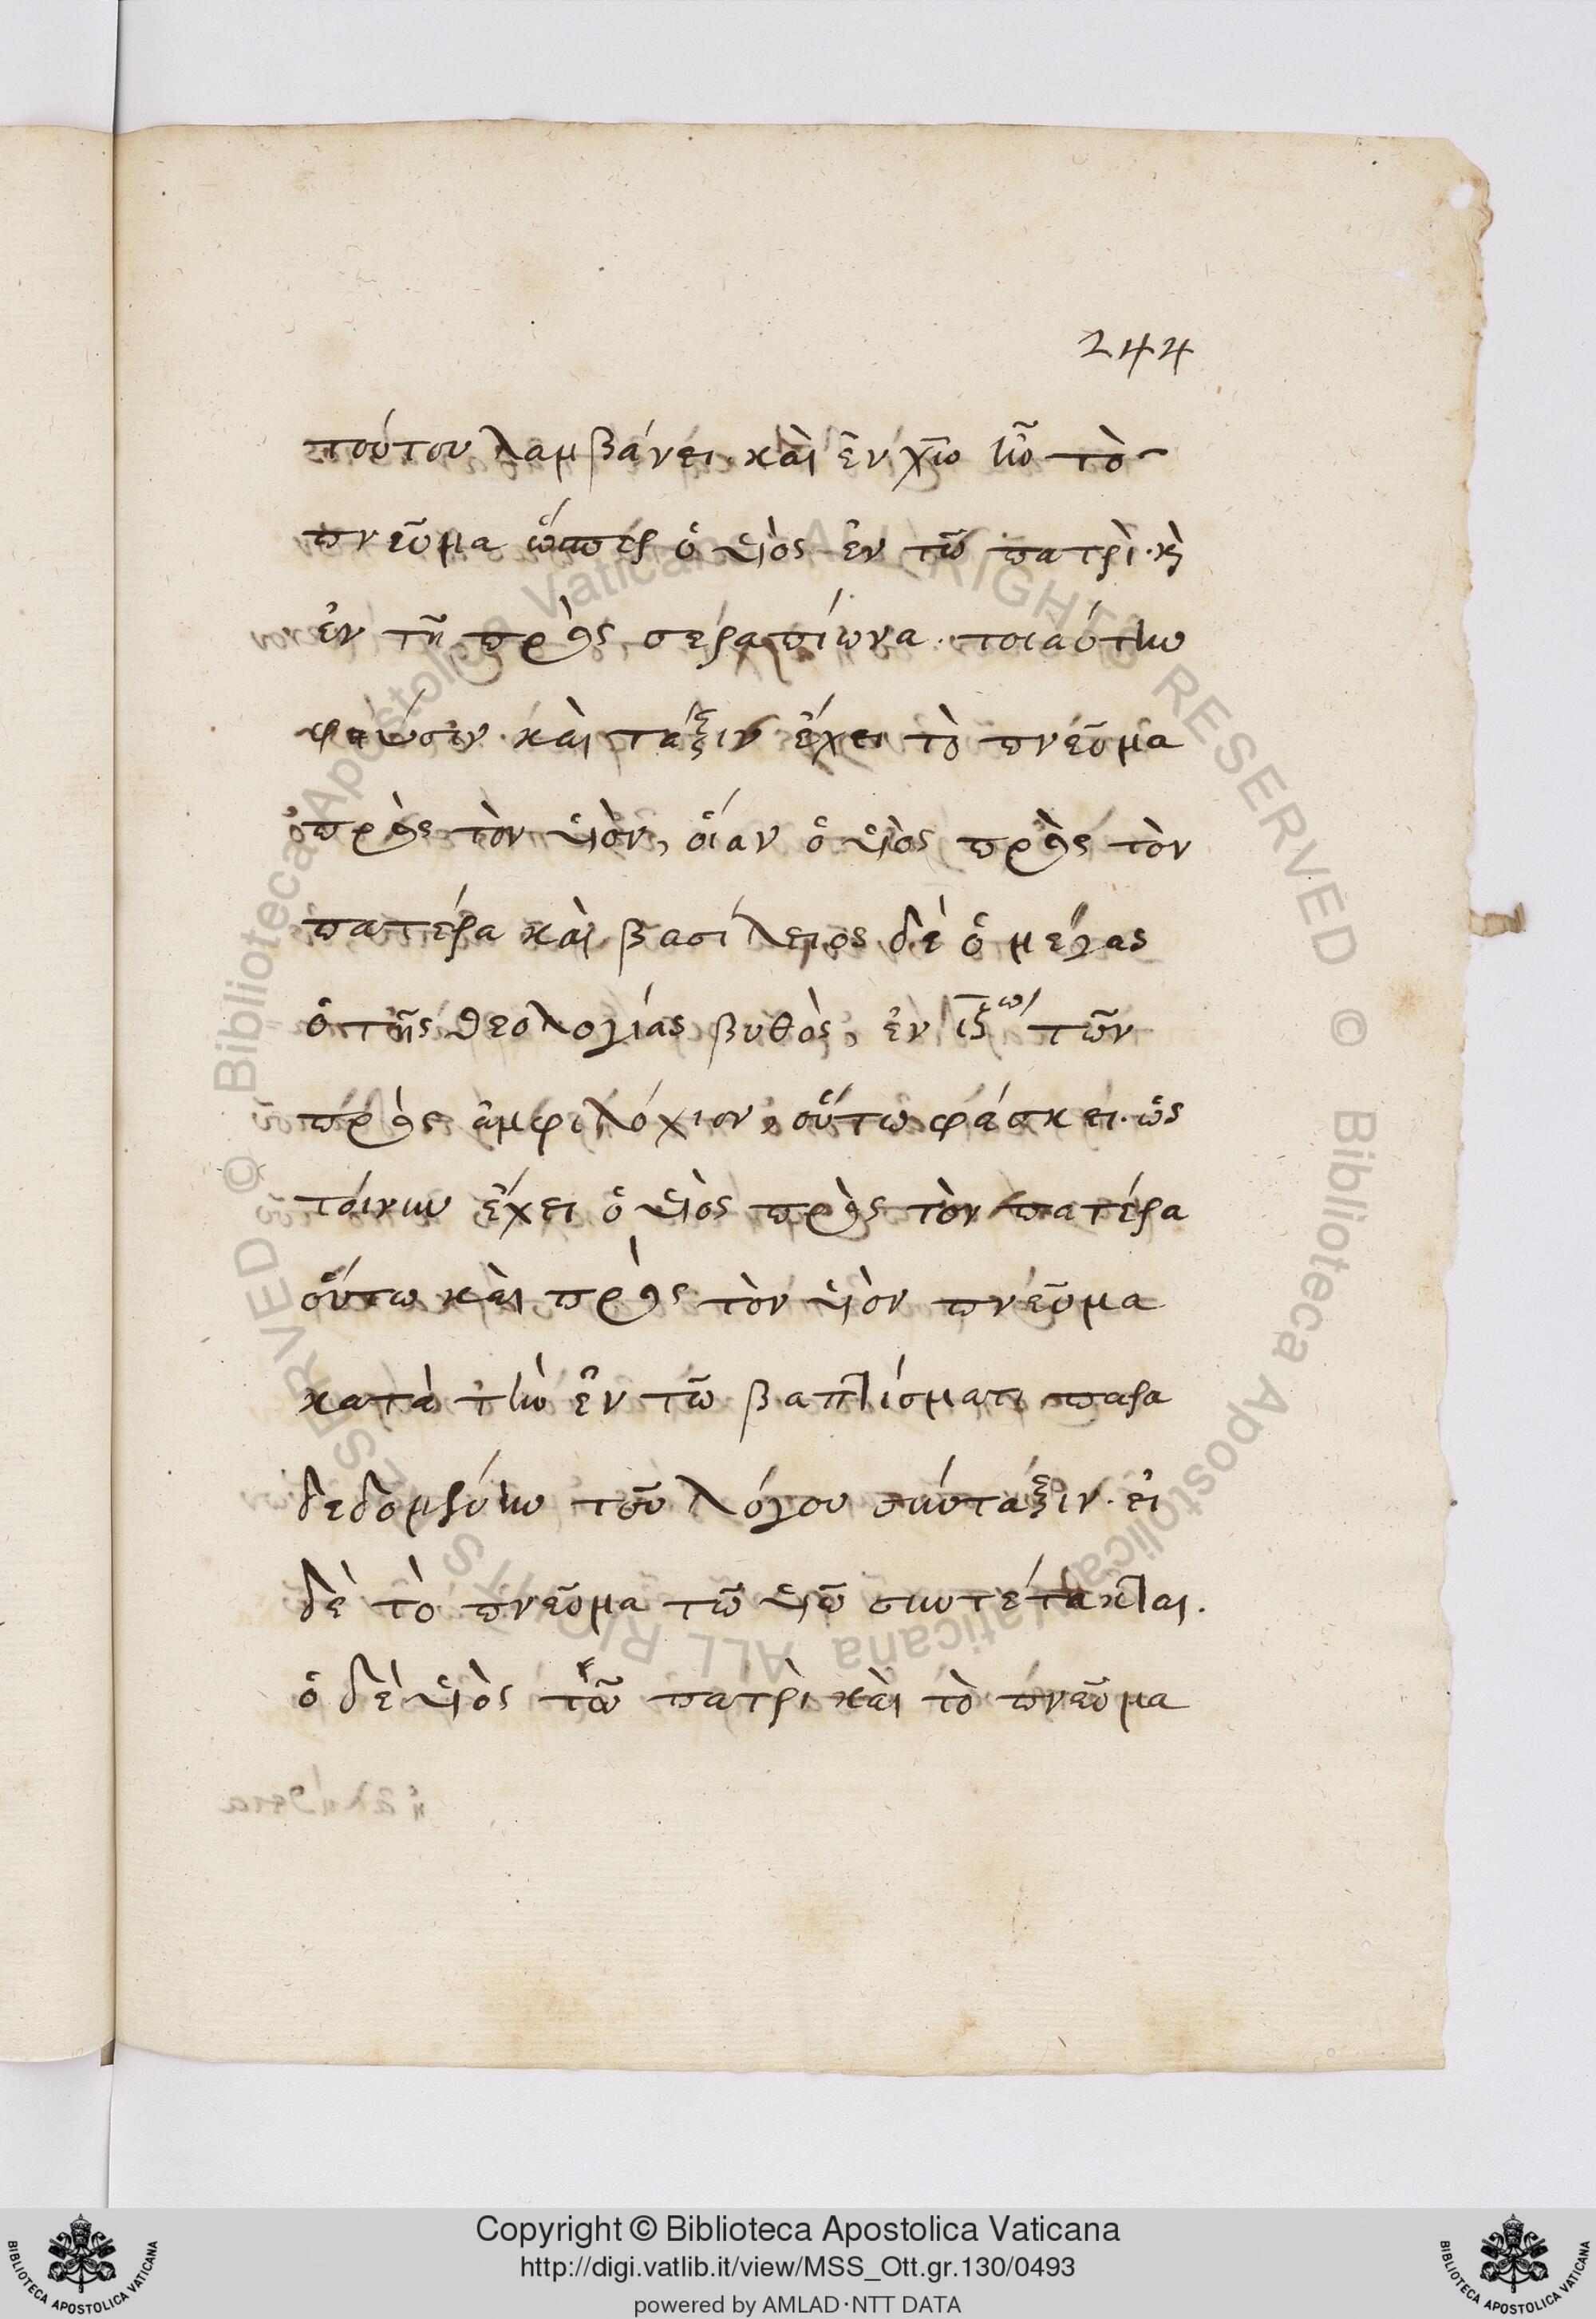 244
τούτου λαμβάνει. καὶ ἐν χῷ ἦν τὸ
πνεῦμα ὥσπερ ὁ υἱὸς ἐν τῶ πατρὶ. κὶ
ἐν τῆ πρὸς σεραπίωνα. τοιαύτην
φύσιν καὶ τάξιν ἔχει τὸ πνεῦμα
πρὸς τὸν υἱὸν, οἵαν ὁ υἱὸς πρὸς τὸν
πατέρα καὶ βασίλειος δὲ ὁ μέγας
ὁ τῆς θεολογίας βυθὸς, ἐν ιζω τῶν
πρὸς ἀμφιλόχιον, οὕτω φάσκει. ὡς
τοίνυν ἔχει ὁ υἱὸς πρὸς τὸν πατέρα
οὕτω καὶ πρὸς τὸν υἱὸν πνεῦμα
κατὰ τὴν ἐν τῶ βαπτίσματι παρα
δεδομένην τοῦ λόγου σύνταξιν. εἰ
δὲ τὸ πνεῦμα τῶ υἱῶ συντέτακται.
ὁ δὲ υἱὸς τῶ πατρὶ καὶ τὸ πνεῦμα
Copyright © Biblioteca Apostolica Vaticana
http://digi.vatlib.it/view/MSS_Ott.gr.130/0493
powered by AMLAD·NTT DATA
BIBLIOTECA APOSTOLICA VATICANA
BIBLIOTECA APOSTOLICA VATICANA
© Biblioteca Apostolica Vaticana ALL RIGHTS RESERVED
© Biblioteca Apostolica Vaticana ALL RIGHTS RESERVED